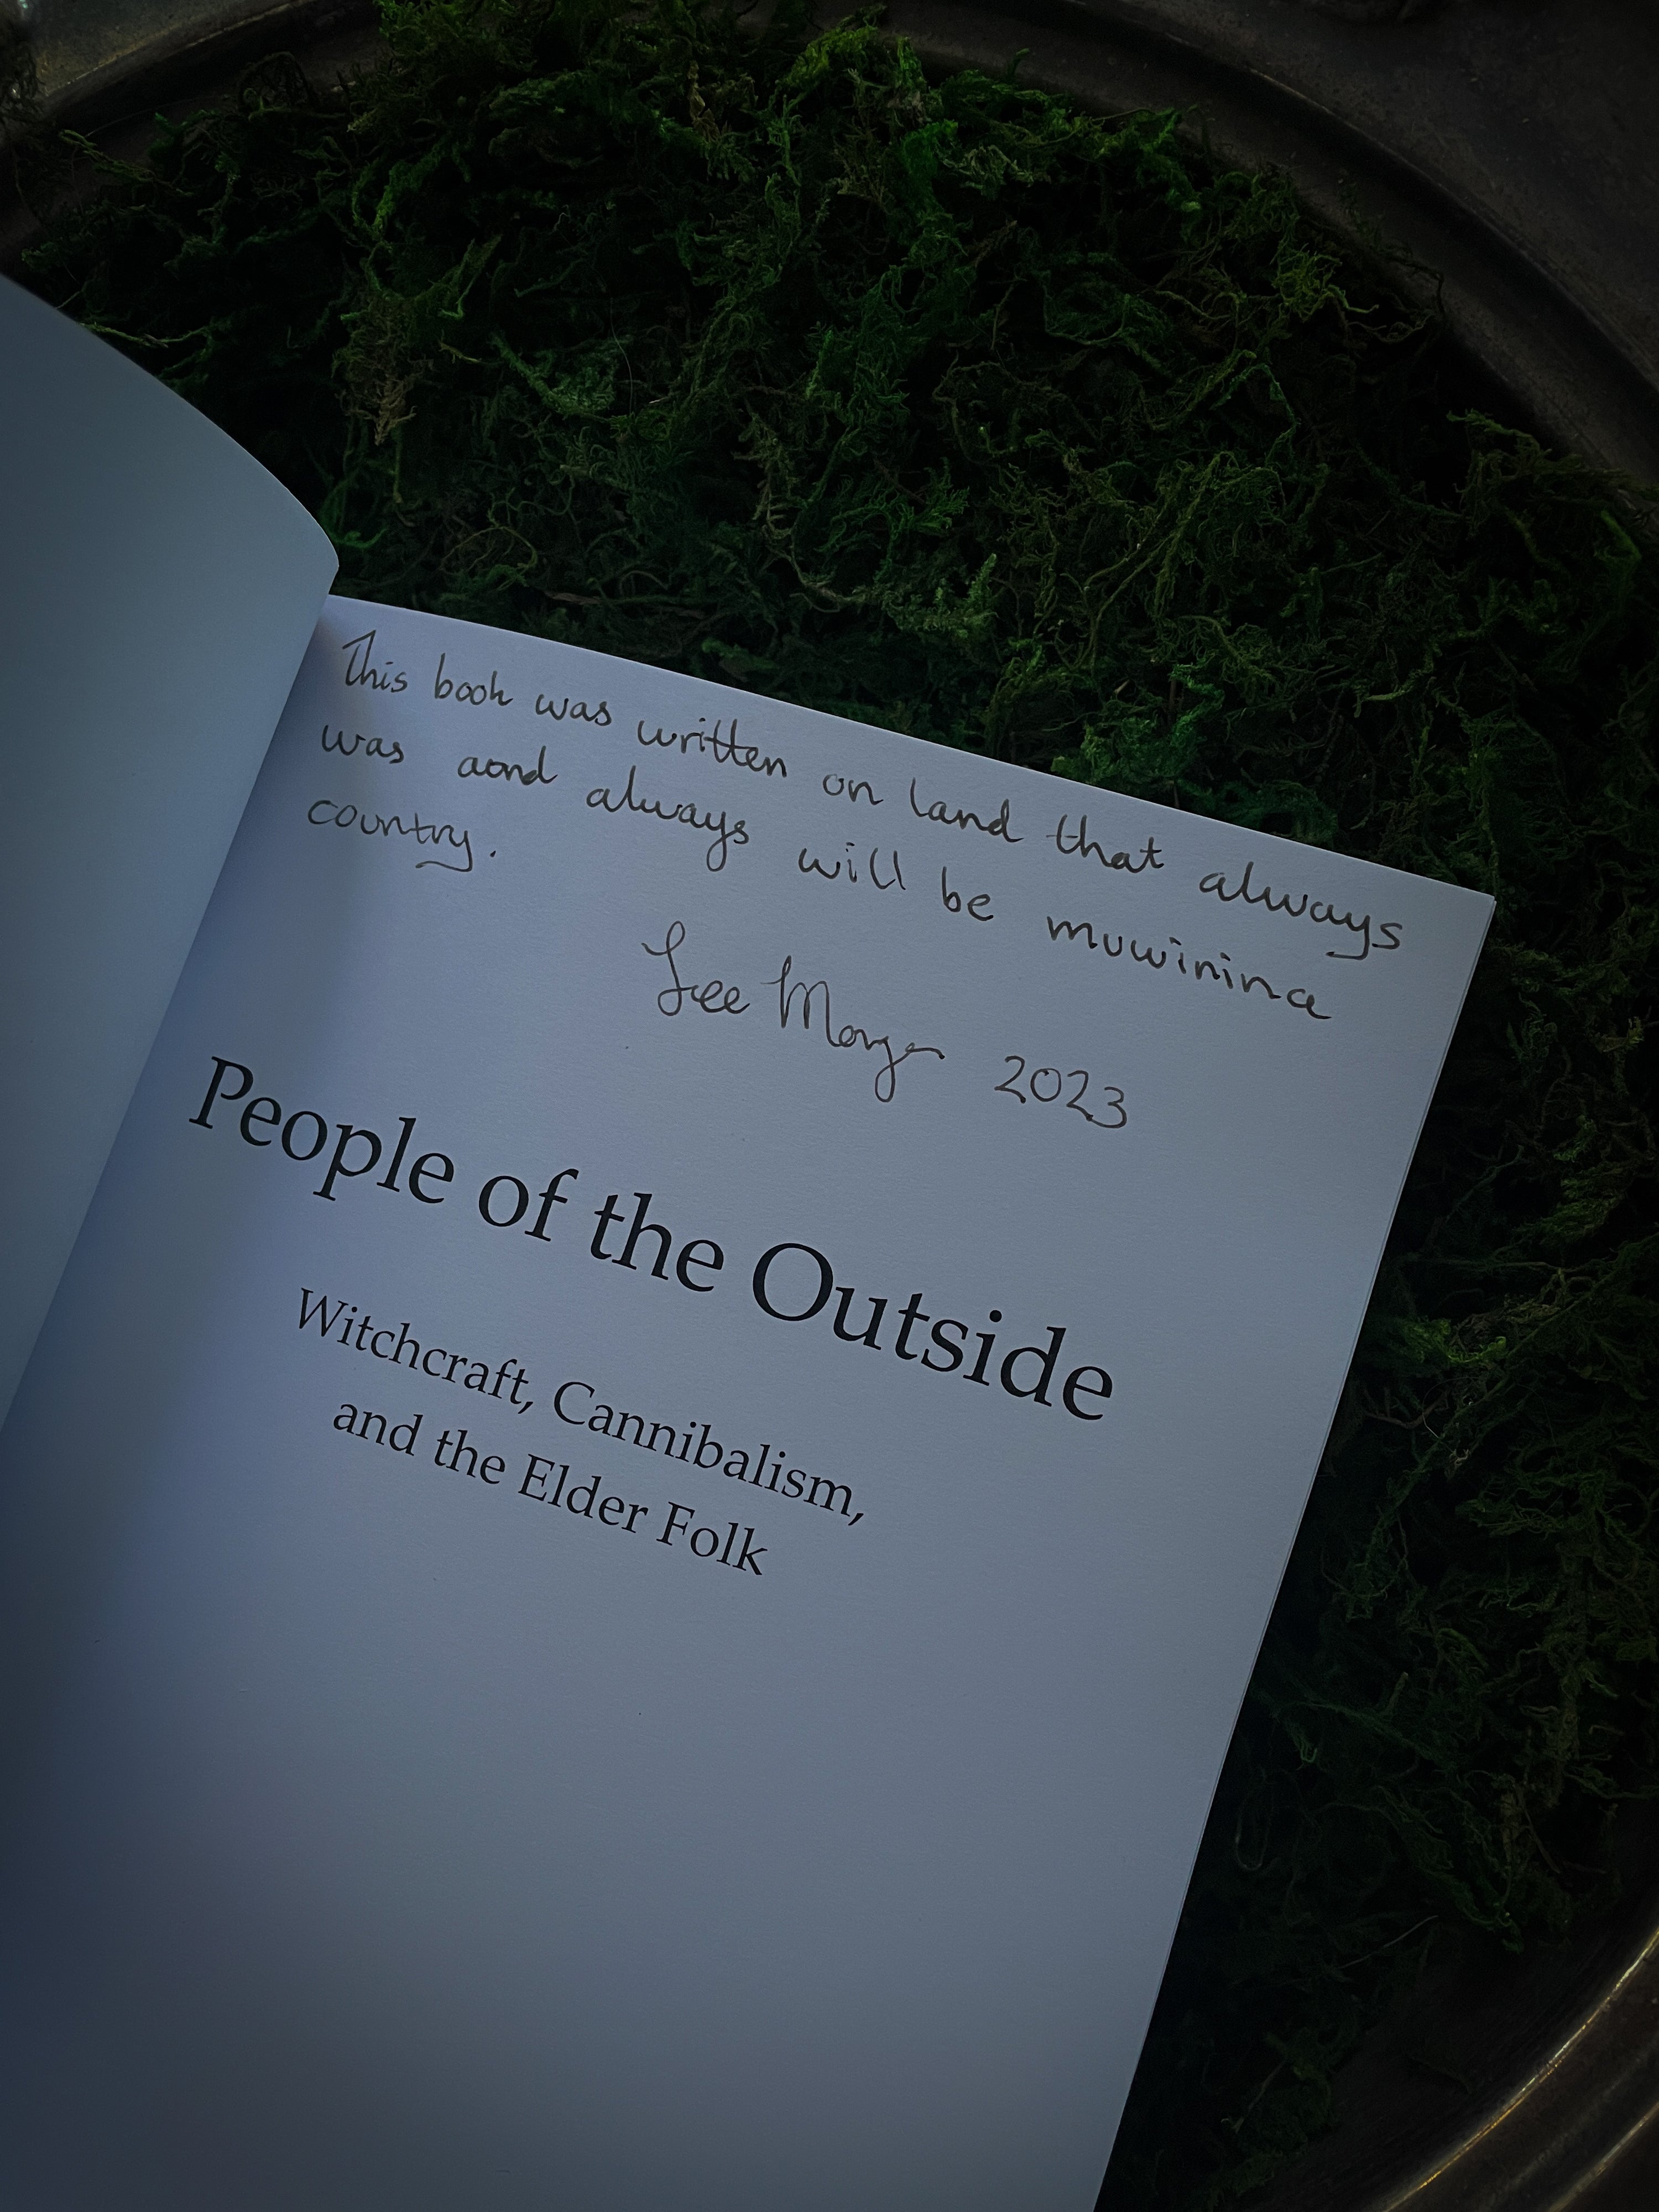 This book was written on land that always
was aond always will be muwinina
country.
Lee Morgan 2023
People of the Outside
Witchcraft, Cannibalism,
and the Elder Folk